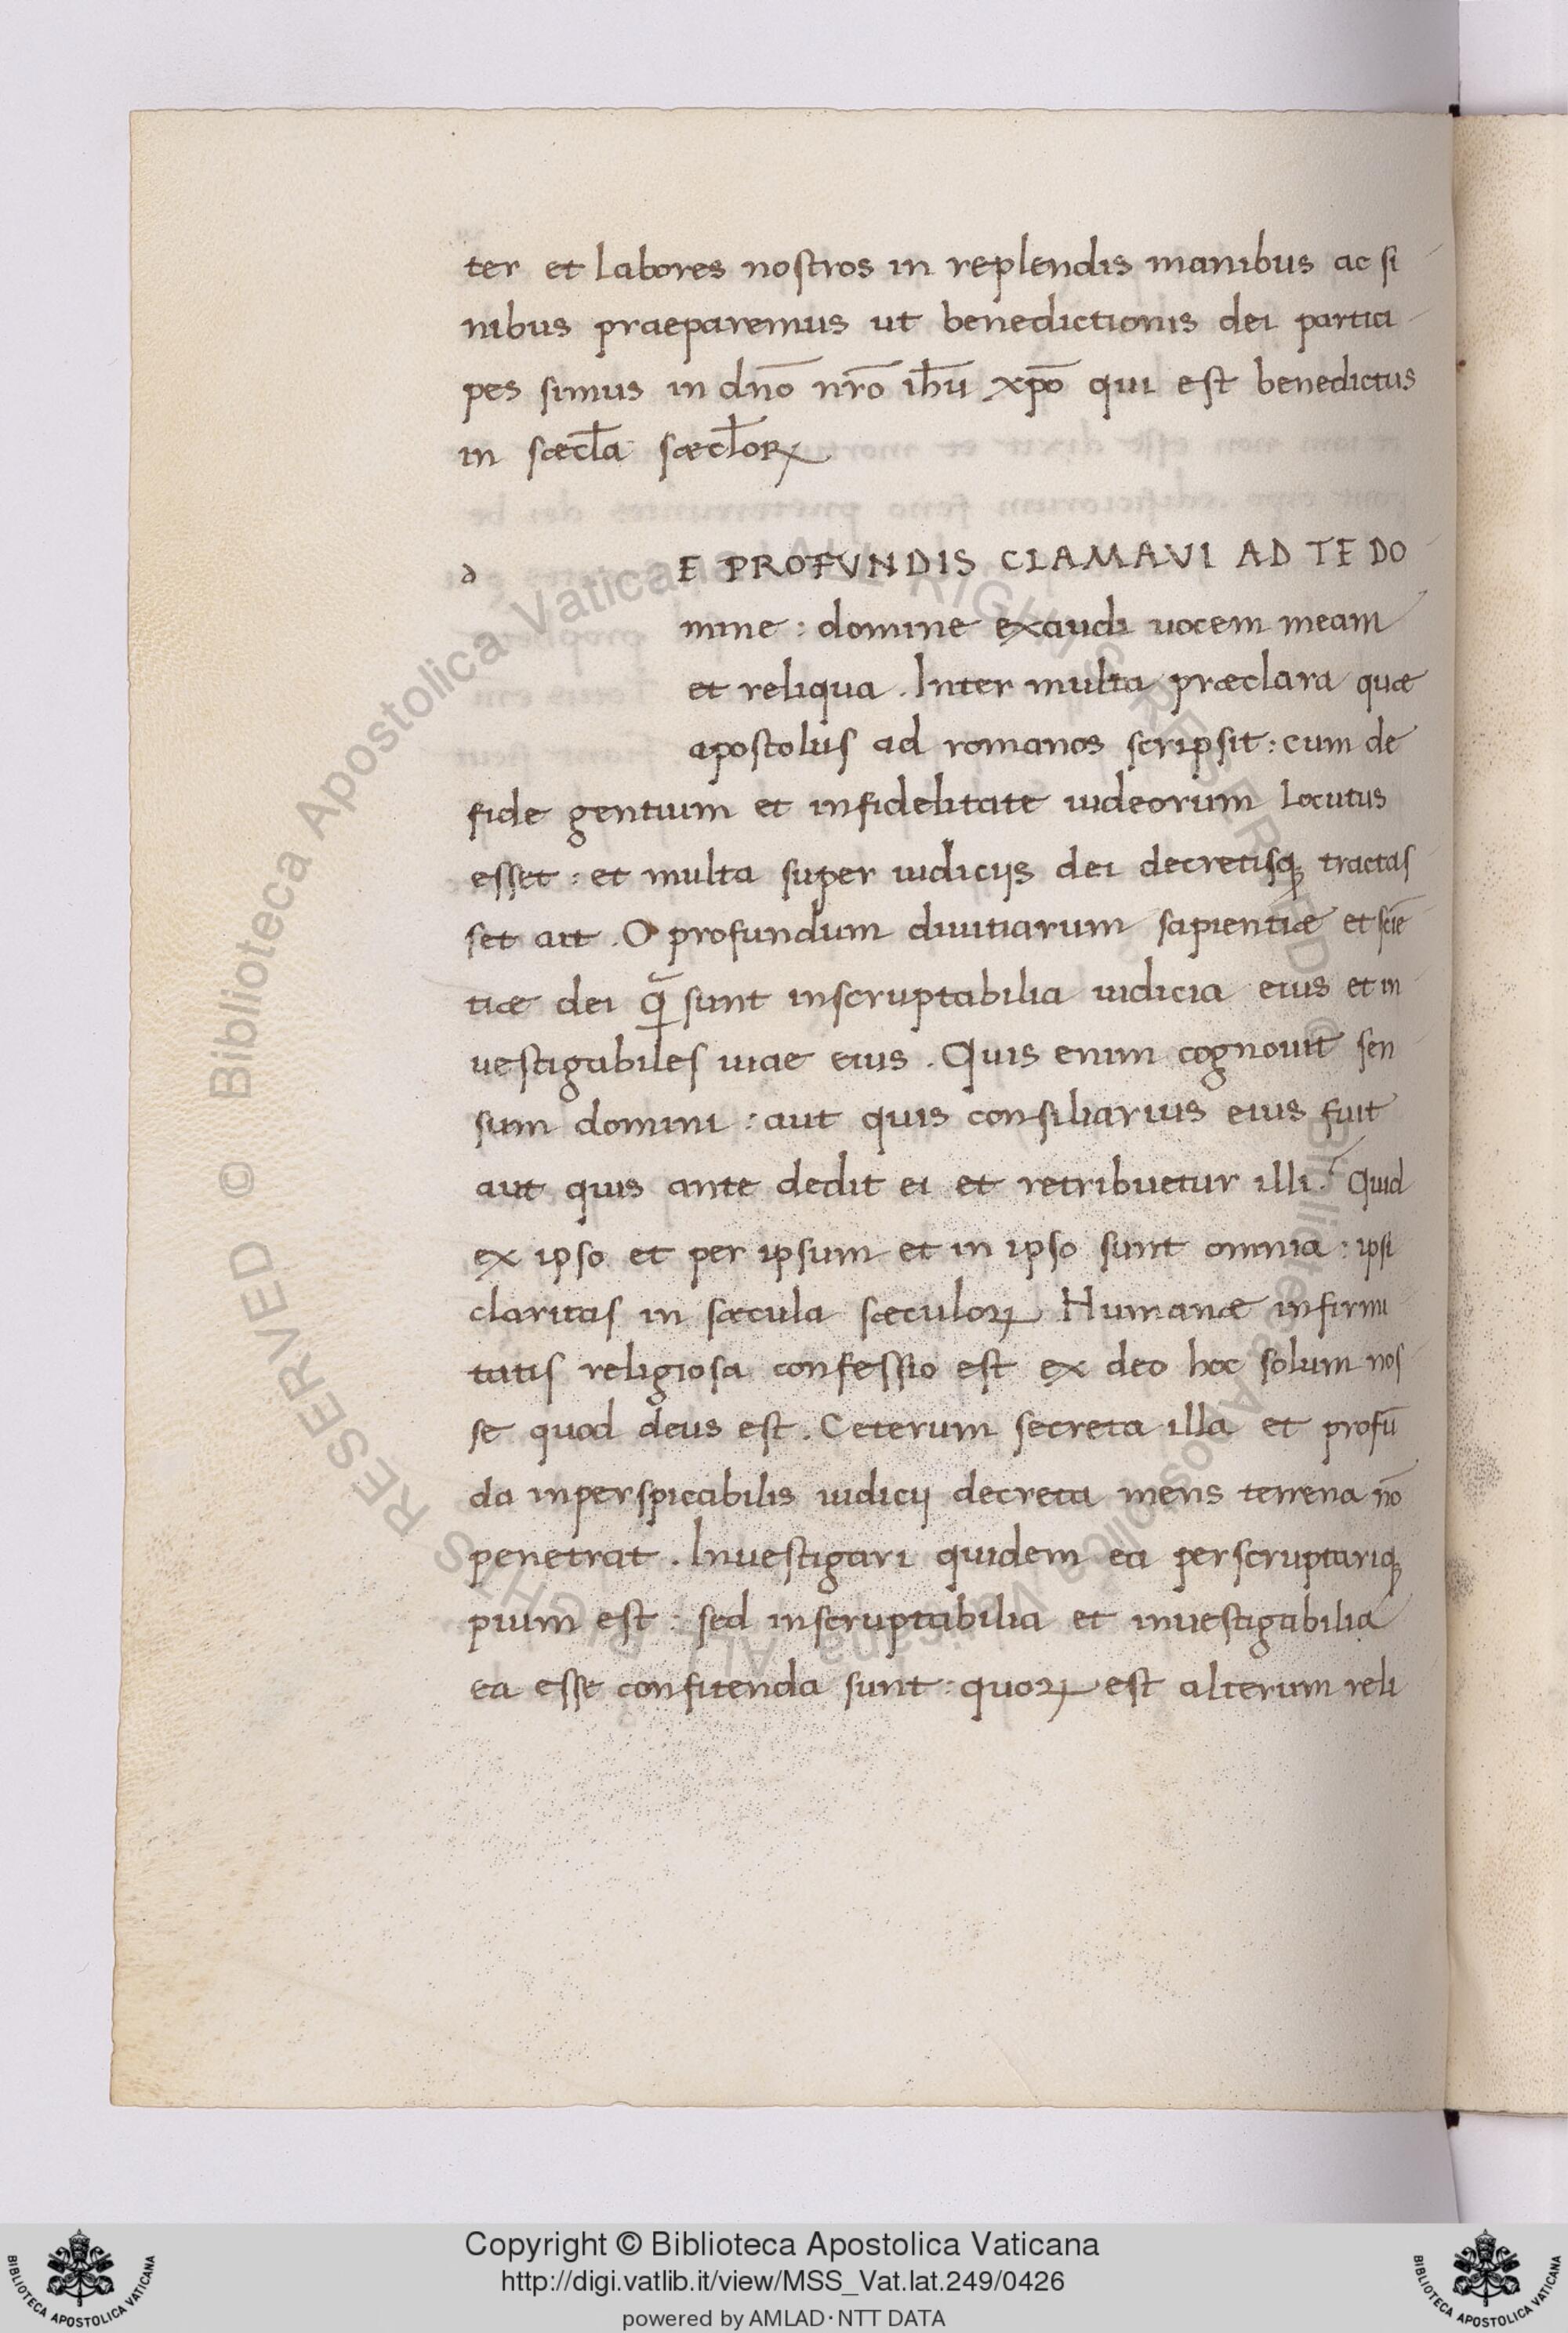 ter et labores nostros in replendis manibus ac si
nibus praeparemus ut benedictionis dei partici
pes simus in dn̄o nr̄o ih̄u xp̄o qui est benedictus
in sæcl̄a sæcl̄oꝝ
d E PROFVNDIS CLAMAVI AD TE DO
mine : domine exaudi uocem meam
et reliqua . Inter multa præclara quæ
apostolus ad romanos scripsit : cum de
fide gentium et infidelitate iudeorum locutus
esset : et multa super iudicijs dei decretisqꝫ tractas
set ait . O profundum diuitiarum sapientiæ et sciē
tiæ dei q̄ sunt inscruptabilia iudicia eius et in
uestigabiles uiae eius . Quis enim cognouit sen
sum domini : aut quis consiliarius eius fuit
aut quis ante dedit ei et retribuetur illi ? Quid
ex ipso et per ipsum et in ipso sunt omnia : ipsi
claritas in sæcula sæculoꝝ Humanæ infirmi
tatis religiosa confessio est ex deo hoc solum nos
se quod deus est . Ceterum secreta illa et profū
da inperspicabilis iudicij decreta mens terrena nō
penetrat . Inuestigari quidem ea perscruptariqꝫ
pium est : sed inscruptabilia et inuestigabilia
ea esse confitenda sunt : quoꝝ est alterum reli
© Biblioteca Apostolica Vaticana ALL RIGHTS RESERVED
© Biblioteca Apostolica Vaticana ALL RIGHTS RESERVED
Copyright © Biblioteca Apostolica Vaticana
http://digi.vatlib.it/view/MSS_Vat.lat.249/0426
powered by AMLAD·NTT DATA
BIBLIOTECA APOSTOLICA VATICANA
BIBLIOTECA APOSTOLICA VATICANA